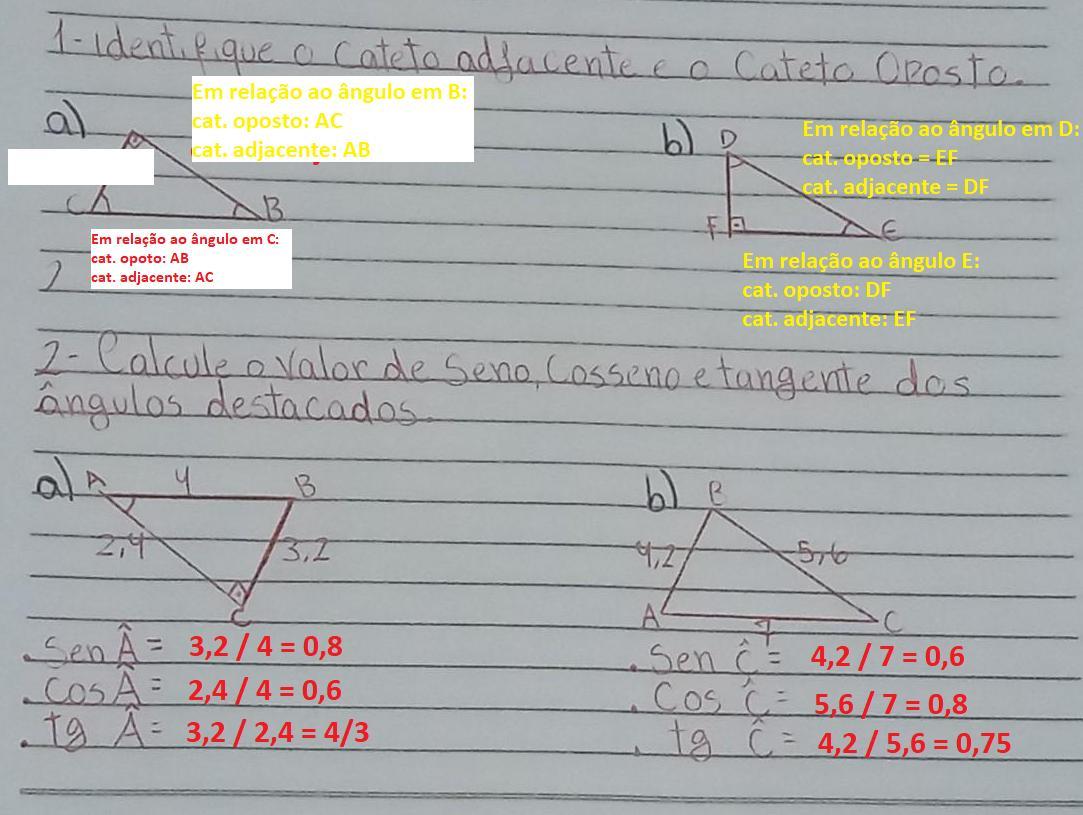 1-Identifique o Cateto adjacente e o Cateto Oposto.
a)
Em relação ao ângulo em B:
cat. oposto: AC
cat. adjacente: AB
C B
Em relação ao ângulo em C:
cat. opoto: AB
cat. adjacente: AC
b)
D
F E
Em relação ao ângulo em D:
cat. oposto = EF
cat. adjacente = DF
Em relação ao ângulo E:
cat. oposto: DF
cat. adjacente: EF
2
2- Calcule o valor de Seno, Cosseno e tangente dos
ângulos destacados.
a) A 4 B
2,4 3,2
C
Sen Â = 3,2 / 4 = 0,8
Cos Â = 2,4 / 4 = 0,6
tg Â = 3,2 / 2,4 = 4/3
b) B
4,2 5,6
A 7 C
Sen Ĉ = 4,2 / 7 = 0,6
Cos Ĉ = 5,6 / 7 = 0,8
tg Ĉ = 4,2 / 5,6 = 0,75